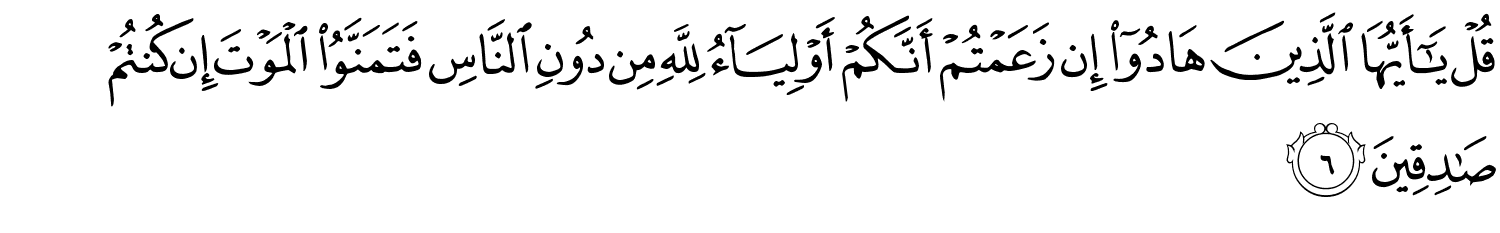 قُلۡ يَـٰٓأَيُّهَا ٱلَّذِينَ هَادُوٓاْ إِن زَعَمۡتُمۡ أَنَّكُمۡ أَوۡلِيَآءُ لِلَّهِ مِن دُونِ ٱلنَّاسِ فَتَمَنَّوُاْ ٱلۡمَوۡتَ إِن كُنتُمۡ
صَٰدِقِينَ ٦